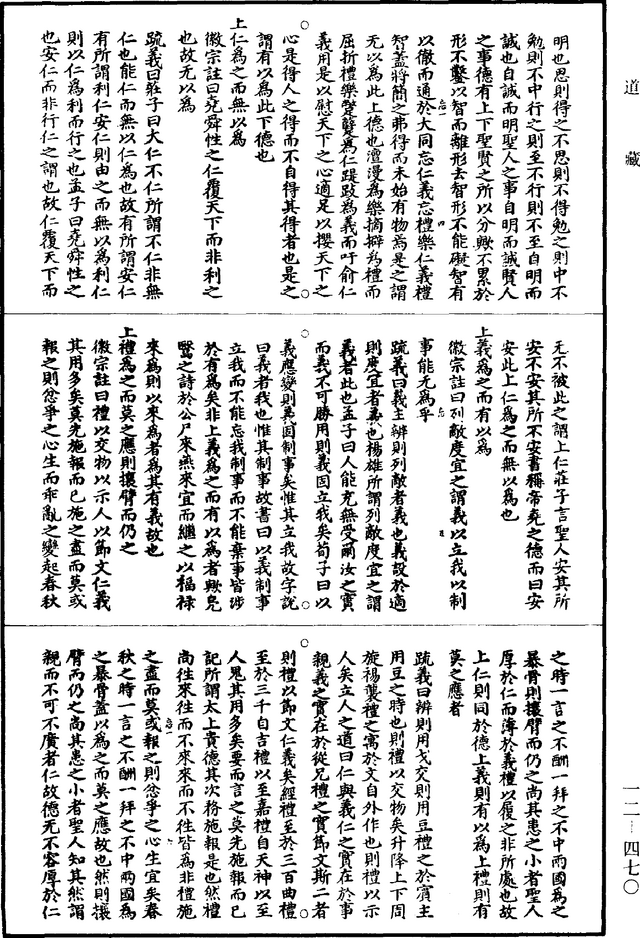 道藏
明也思則得之不思則不得勉之則中不
勉則不中行之則至不行則不至自明而
誠也自誠而明聖人之事自明而誠賢人
之事德有上下聖賢之所以分歟不累於
形不鑿以智而離形去智形不能礙智有
以徹而通於大同忘仁義忘禮樂仁義禮
智蓋將簡之弗得而未始有物焉是之謂
无以為此上德也澶漫為樂摘擗為禮而
屈折禮樂蹩躠為仁踶跂為義而吁俞仁
義用是以慰天下之心適足以攖天下之
心是得人之得而不自得其得者也是之
謂有以為此下德也
上仁為之而無以為
徽宗註曰堯舜性之仁覆天下而非利之
也故无以為
疏義曰莊子曰大仁不仁所謂不仁非無
仁也能仁而無以仁為也故有所謂安仁
有所謂利仁安仁則由之而無以為利仁
則以仁為利而行之也孟子曰堯舜性之
也安仁而非行仁之謂也故仁覆天下而
无不被此之謂上仁莊子言聖人安其所
安不安其所不安書稱帝堯之德而曰安
安此上仁為之而無以為也
上義為之而有以為
徽宗註曰列敵度宜之謂義以立我以制
事能无為乎
疏義曰義主辨則列敵者義也義設於適
則度宜者義也楊雄所謂列敵度宜之謂
義者此也孟子曰人能充無受爾汝之實
而義不可勝用則義因立我矣荀子曰以
義應變則義因制事矣惟其立我故字說
曰義者我也惟其制事故書曰以義制事
立我而不能忘我制事而不能棄事皆涉
於有為矣非上義為之而有以為者歟鳧
鷖之詩於公尸來燕來宜而繼之以福祿
來為則以來為者為其有義故也
上禮為之而莫之應則攘臂而仍之
徽宗註曰禮以交物以示人以節文仁義
其用多矣莫先施報而已施之盡而莫或
報之則忿爭之心生而乖亂之變起春秋
之時一言之不酬一拜之不中兩國為之
暴骨則攘臂而仍之尚其患之小者聖人
厚於仁而薄於義禮以履之非所處也故
上仁則同於德上義則有以為上禮則有
莫之應者
疏義曰辨則用戈交則用豆禮之於賓主
用豆之時也則禮以交物矣升降上下周
旋裼襲禮之寓於文自外作也則禮以示
人矣立人之道曰仁與義仁之實在於事
親義之實在於從兄禮之實節文斯二者
則禮以節文仁義矣經禮至於三百曲禮
至於三千自吉禮以至嘉禮自天神以至
人鬼其用多矣要而言之莫先施報而已
記所謂太上貴德其次務施報是也然禮
尚往來往而不來來而不往皆為非禮施
之盡而莫或報之則忿爭之心生宜矣春
秋之時一言之不酬一拜之不中兩國為
之暴骨蓋以為之而莫之應故也然則攘
臂而仍之尚其患之小者聖人知其然謂
親而不可不廣者仁故德无不容厚於仁
一二—四七〇